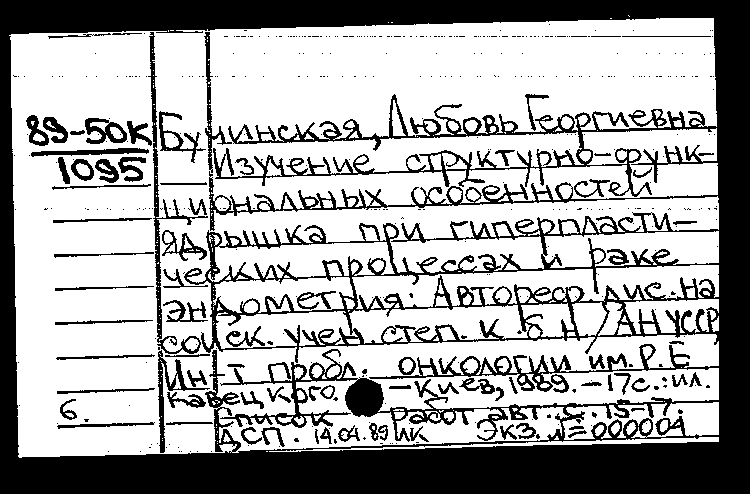 89-50К
1095
Бучинская, Любовь Георгиевна.
Изучение структурно-функ-
циональных особенностей
ядрышка при гиперпласти-
ческих процессах и раке
эндометрия: Автореф. дис. на
соиск. учен. степ. к. б. н / АН УССР,
Ин-т пробл. онкологии им. Р. Е
Кавецкого. - Киев, 1989. - 17 с.: ил.
6.
Список работ авт.: с. 15-17.
ДСП. 14.04.89 ЛК Экз. № 000004.